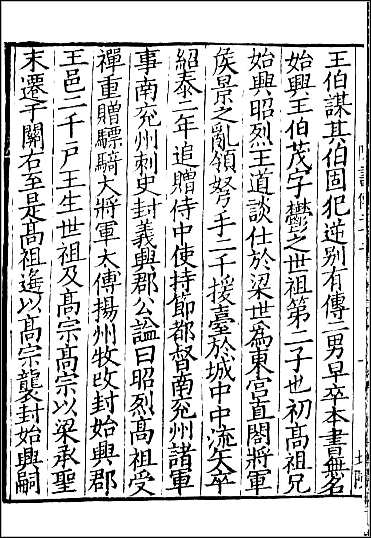 王伯謀其伯固犯逆别有傳二男早卒本書無名
始興王伯茂字鬱之世祖第二子也初髙祖兄
始興昭烈王道談仕於梁世為東宫直閤將軍
侯景之亂領弩手二千援臺於城中中流矢卒
紹泰二年追贈侍中使持節都督南兖州諸軍
事南兖州刺史封義興郡公諡曰昭烈髙祖受
禪重贈驃騎大將軍太傅揚州牧改封始興郡
王邑二千戸王生世祖及髙宗髙宗以梁承聖
末遷于關右至是髙祖遥以髙宗襲封始興嗣